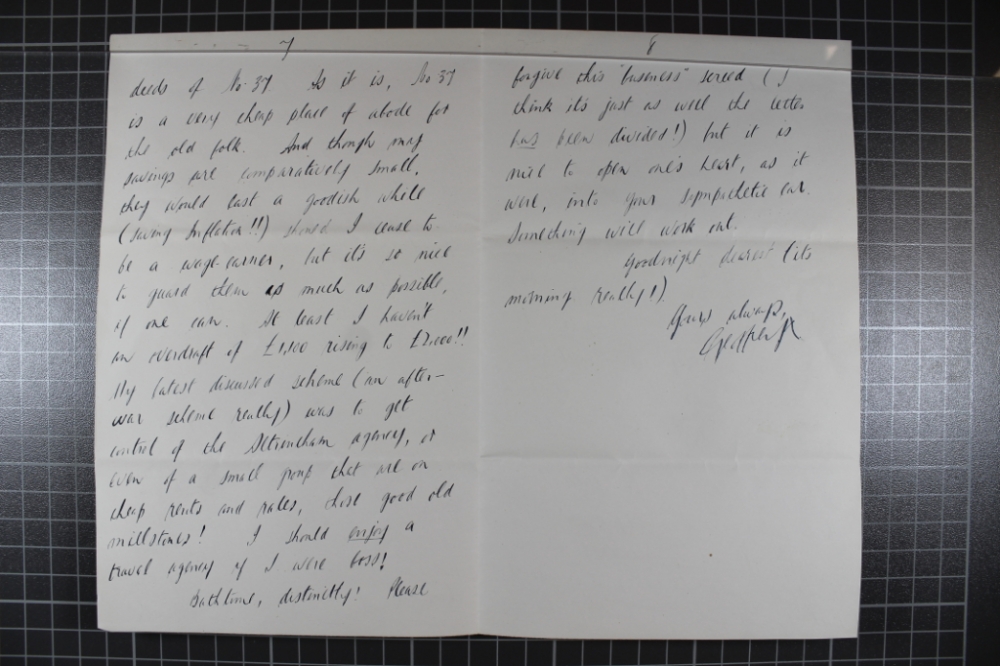 7
deeds of No. 37. As it is, No 37
is a very cheap place of abode for
the old folk. And though my
savings are comparatively small,
they would last a goodish while
(saving Inflation!!) should I cease to
be a wage-earner, but it's so nice
to guard them as much as possible,
if one can. At least I haven't
an overdraft of £1,500 rising to £2,000!!
My latest discussed scheme (an after-
war scheme really) was to get
control of the Altrincham agency, or
even of a small group that are on
cheap rents and rates, those good old
millstones! I should enjoy a
travel agency if I were boss!
Bathtime, distinctly! Please
8
forgive this "business" screed (I
think it's just as well the letter
has been divided!) but it is
nice to open one's heart, as it
were, into your sympathetic ear.
Something will work out.
Goodnight dearest (its
morning really!)
Yours always,